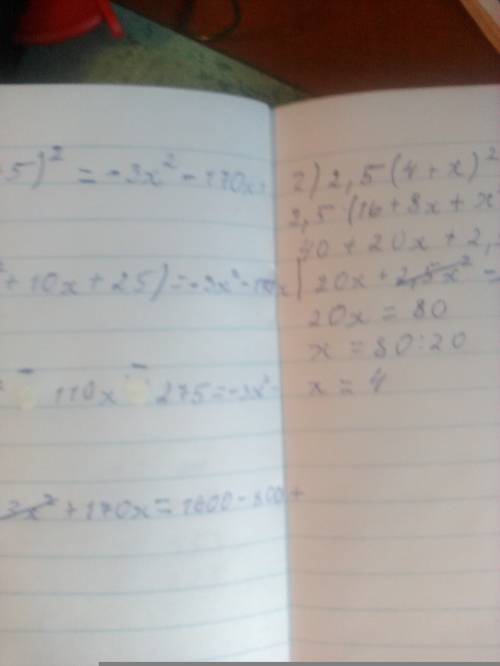 5)² = -3x² - 170x
+ 10x + 25) = -3x² - 170x
110x - 275 = -3x² -
3x² + 170x = 1600 - 800 +
2) 2,5(4 + x)²
2,5(16 + 8x + x
40 + 20x + 2,
20x + 2,5x² =
20x = 80
x = 80:20
x = 4